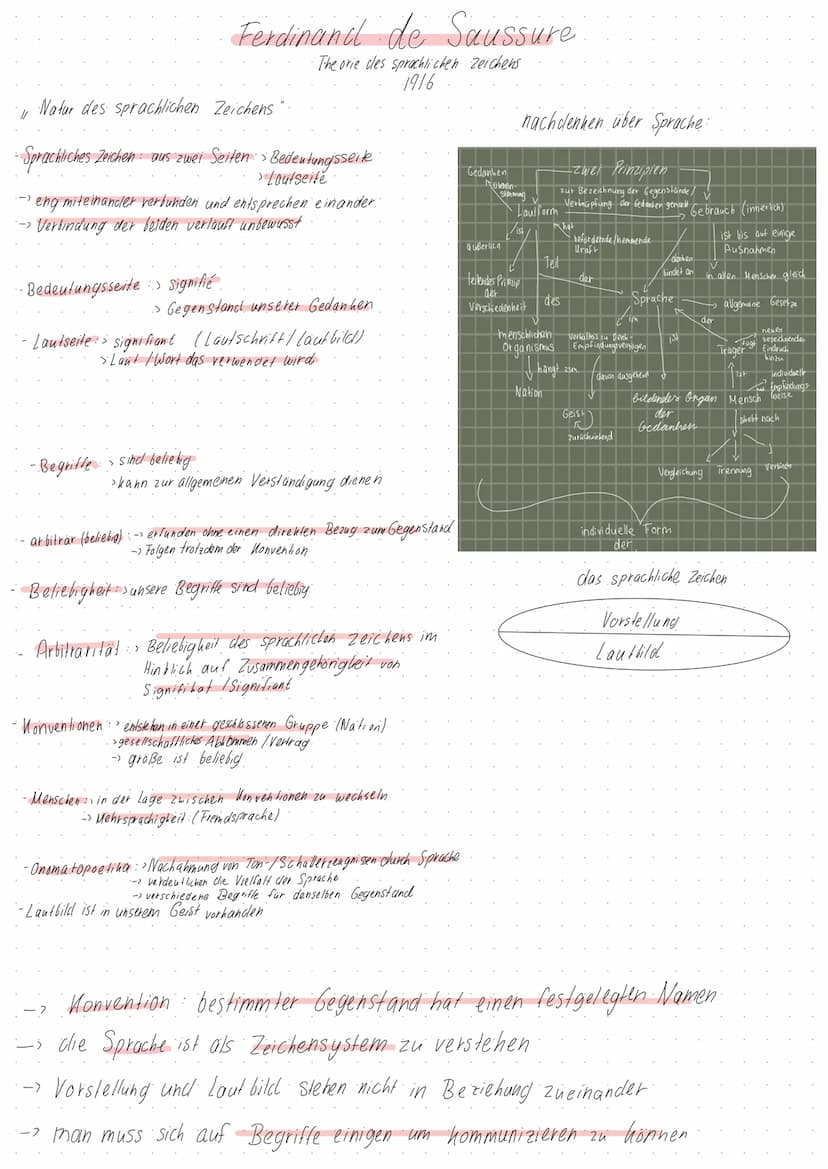 Ferdinand de Saussure
Theorie des sprachlichen Zeichens
1916
"Natur des sprachlichen Zeichens"
- Sprachliches Zeichen: aus zwei Seiten > Bedeutungsseite
> Lautseite
-> eng miteinander verbunden und entsprechen einander
-> Verbindung der beiden verläuft unbewusst
- Bedeutungsseite :> signifié
> Gegenstand unserer Gedanken
- Lautseite :> signifiant (Lautschrift/Lautbild)
> Laut/Wort das verwendet wird
- Begriffe > sind beliebig
> kann zur allgemeinen Verständigung dienen
- arbiträr (beliebig) :-> erfunden ohne einen direkten Bezug zum Gegenstand
-> Folgen trotzdem der Konvention
- Beliebigkeit :> unsere Begriffe sind beliebig
- Arbitrarität :> Beliebigkeit des sprachlichen Zeichens im
Hinblich auf Zusammengehörigkeit von
Signifikat / Signifiant
- Konventionen :> entstehen in einer geschlossenen Gruppe (Nation)
> gesellschaftliches Abkommen / Vertrag
-> größe ist beliebig
- Menschen :> in der Lage zwischen Konventionen zu wechseln
-> Mehrsprachigkeit (Fremdsprache)
- Onomatopoetika :> Nachahmung von Ton-/Schallerzeugnissen durch Sprache
-> verdeutlichen die Vielfalt der Sprache
-> verschiedene Begriffe für denselben Gegenstand
- Lautbild ist in unserem Geist vorhanden
nachdenken über Sprache:
Gedanken
zwei Prinzipien
zur Bezeichnung der Gegenstände/
Verknüpfung der Gedanken genutzt
Lautform
Gebrauch (innerlich)
ist
hat
befördernde/hemmende
Kraft
ist bis auf einige
Ausnahmen
äußerlich
Teil
der
des
bindet an
in allen Menschen gleich
leitendes Prinzip
der
Verschiedenheit
Sprache
allgemeine Gesetze
im
ist
der
menschlichen
Organismus
Verhältnis zu Denk-
Empfindungsvermögen
Träger
fügt
neuen
bezeichnenden
Eindruck
hinzu
hängt zsm.
davon ausgehend
ist
individuelle
Empfindungs
weise
Nation
bildendes Organ
der
Gedanken
Mensch
Geist
zurückwirkend
strebt nach
Vergleichung
Trennung
individuelle Form
der
das sprachliche Zeichen
Vorstellung
Lautbild
-> Konvention: bestimmter Gegenstand hat einen festgelegten Namen
-> die Sprache ist als Zeichensystem zu verstehen
-> Vorstellung und Lautbild stehen nicht in Beziehung zueinander
-> man muss sich auf Begriffe einigen um kommunizieren zu können